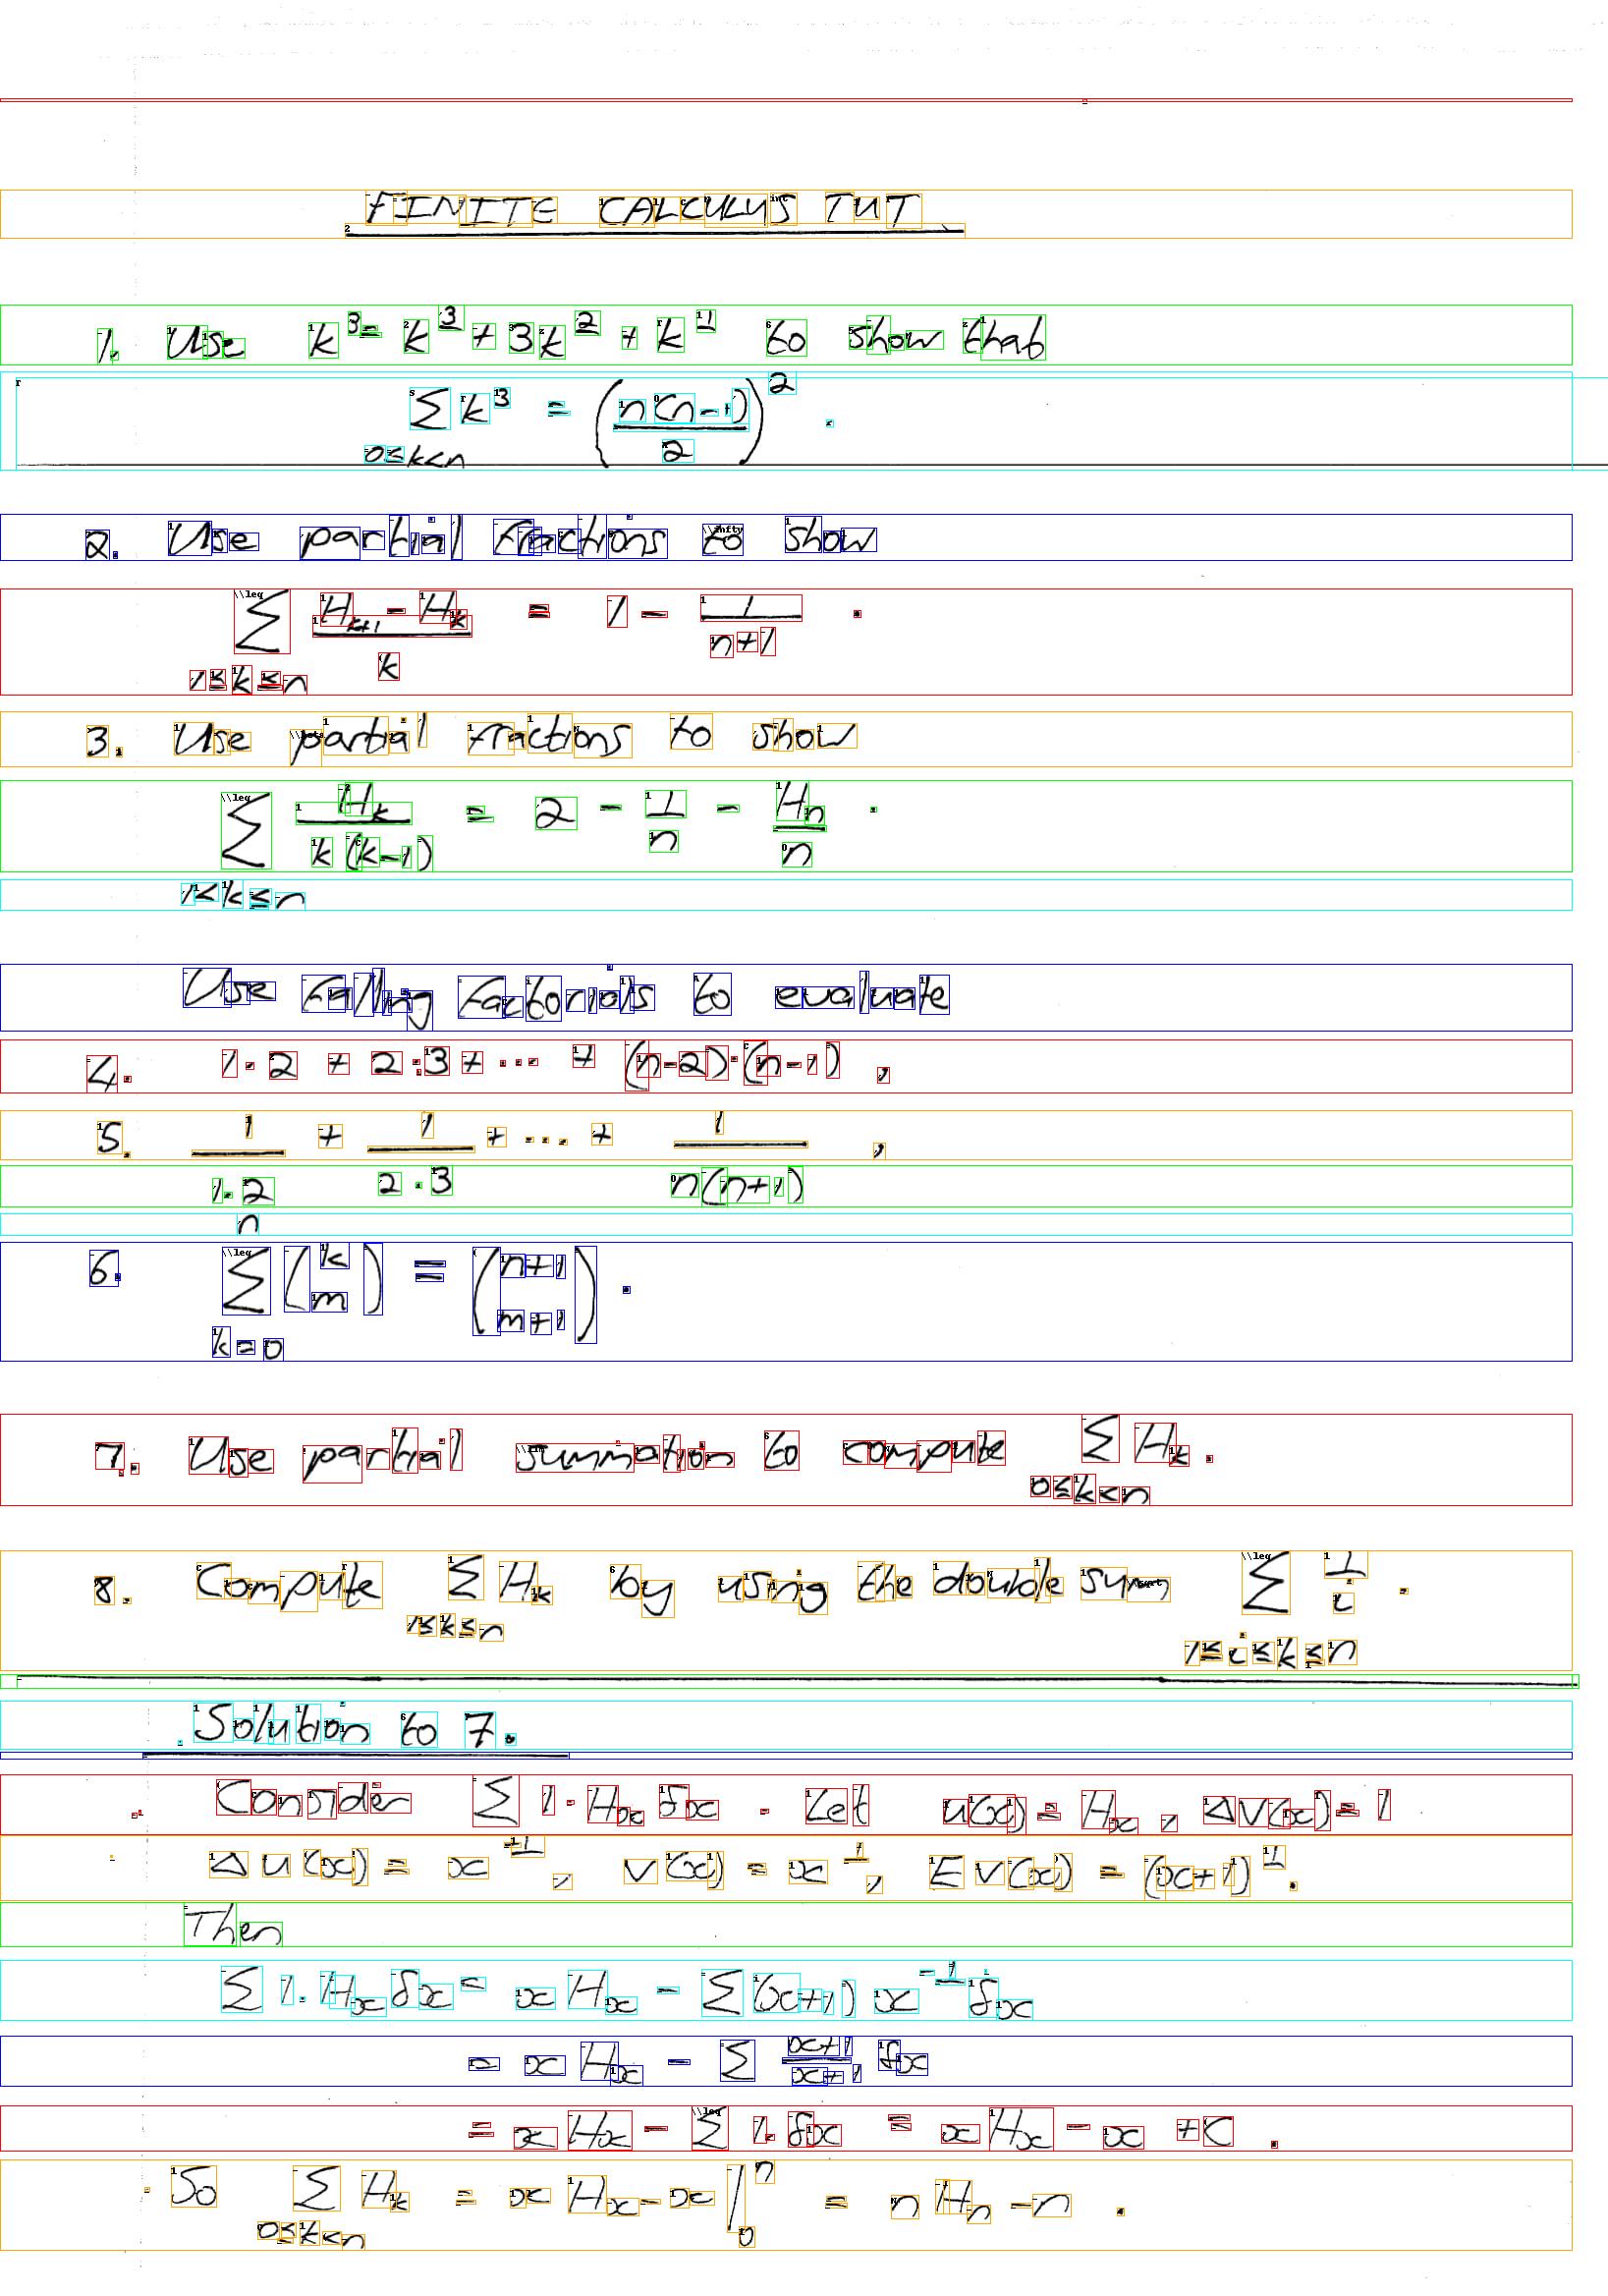 FINITE CALCULUS TUT
1. Use k³ = k^<u>3</u> + 3k^<u>2</u> + k^<u>1</u> to show that
∑_{0≤k<n} k³ = (n(n-1)/2)² .
2. Use partial fractions to show
∑_{1≤k≤n} (H_{k+1} - H_k)/k = 1 - 1/(n+1) .
3. Use partial fractions to show
∑_{1<k≤n} H_k/(k(k-1)) = 2 - 1/n - H_n/n .
Use Falling Factorials to evaluate
4. 1·2 + 2·3 + ... + (n-2)·(n-1) ,
5. 1/(1·2) + 1/(2·3) + ... + 1/(n(n+1)) ,
6. ∑_{k=0}^{n} (k m) = (n+1 m+1) .
7. Use partial summation to compute ∑_{0≤k<n} H_k .
8. Compute ∑_{1≤k≤n} H_k by using the double sum ∑_{1≤i≤k≤n} 1/i .
Solution to 7.
Consider ∑ 1·H_x δx . Let u(x) = H_x , ΔV(x) = 1
Δu(x) = x^<u>-1</u> , V(x) = x^<u>1</u> , E V(x) = (x+1)^<u>1</u> .
Then
∑ 1·H_x δx = x H_x - ∑(x+1) x^<u>-1</u> δx
= x H_x - ∑ (x+1)/(x+1) δx
= x H_x - ∑ 1. δx = x H_x - x + C .
So ∑_{0≤k<n} H_k = x H_x - x |_0^n = n H_n - n .